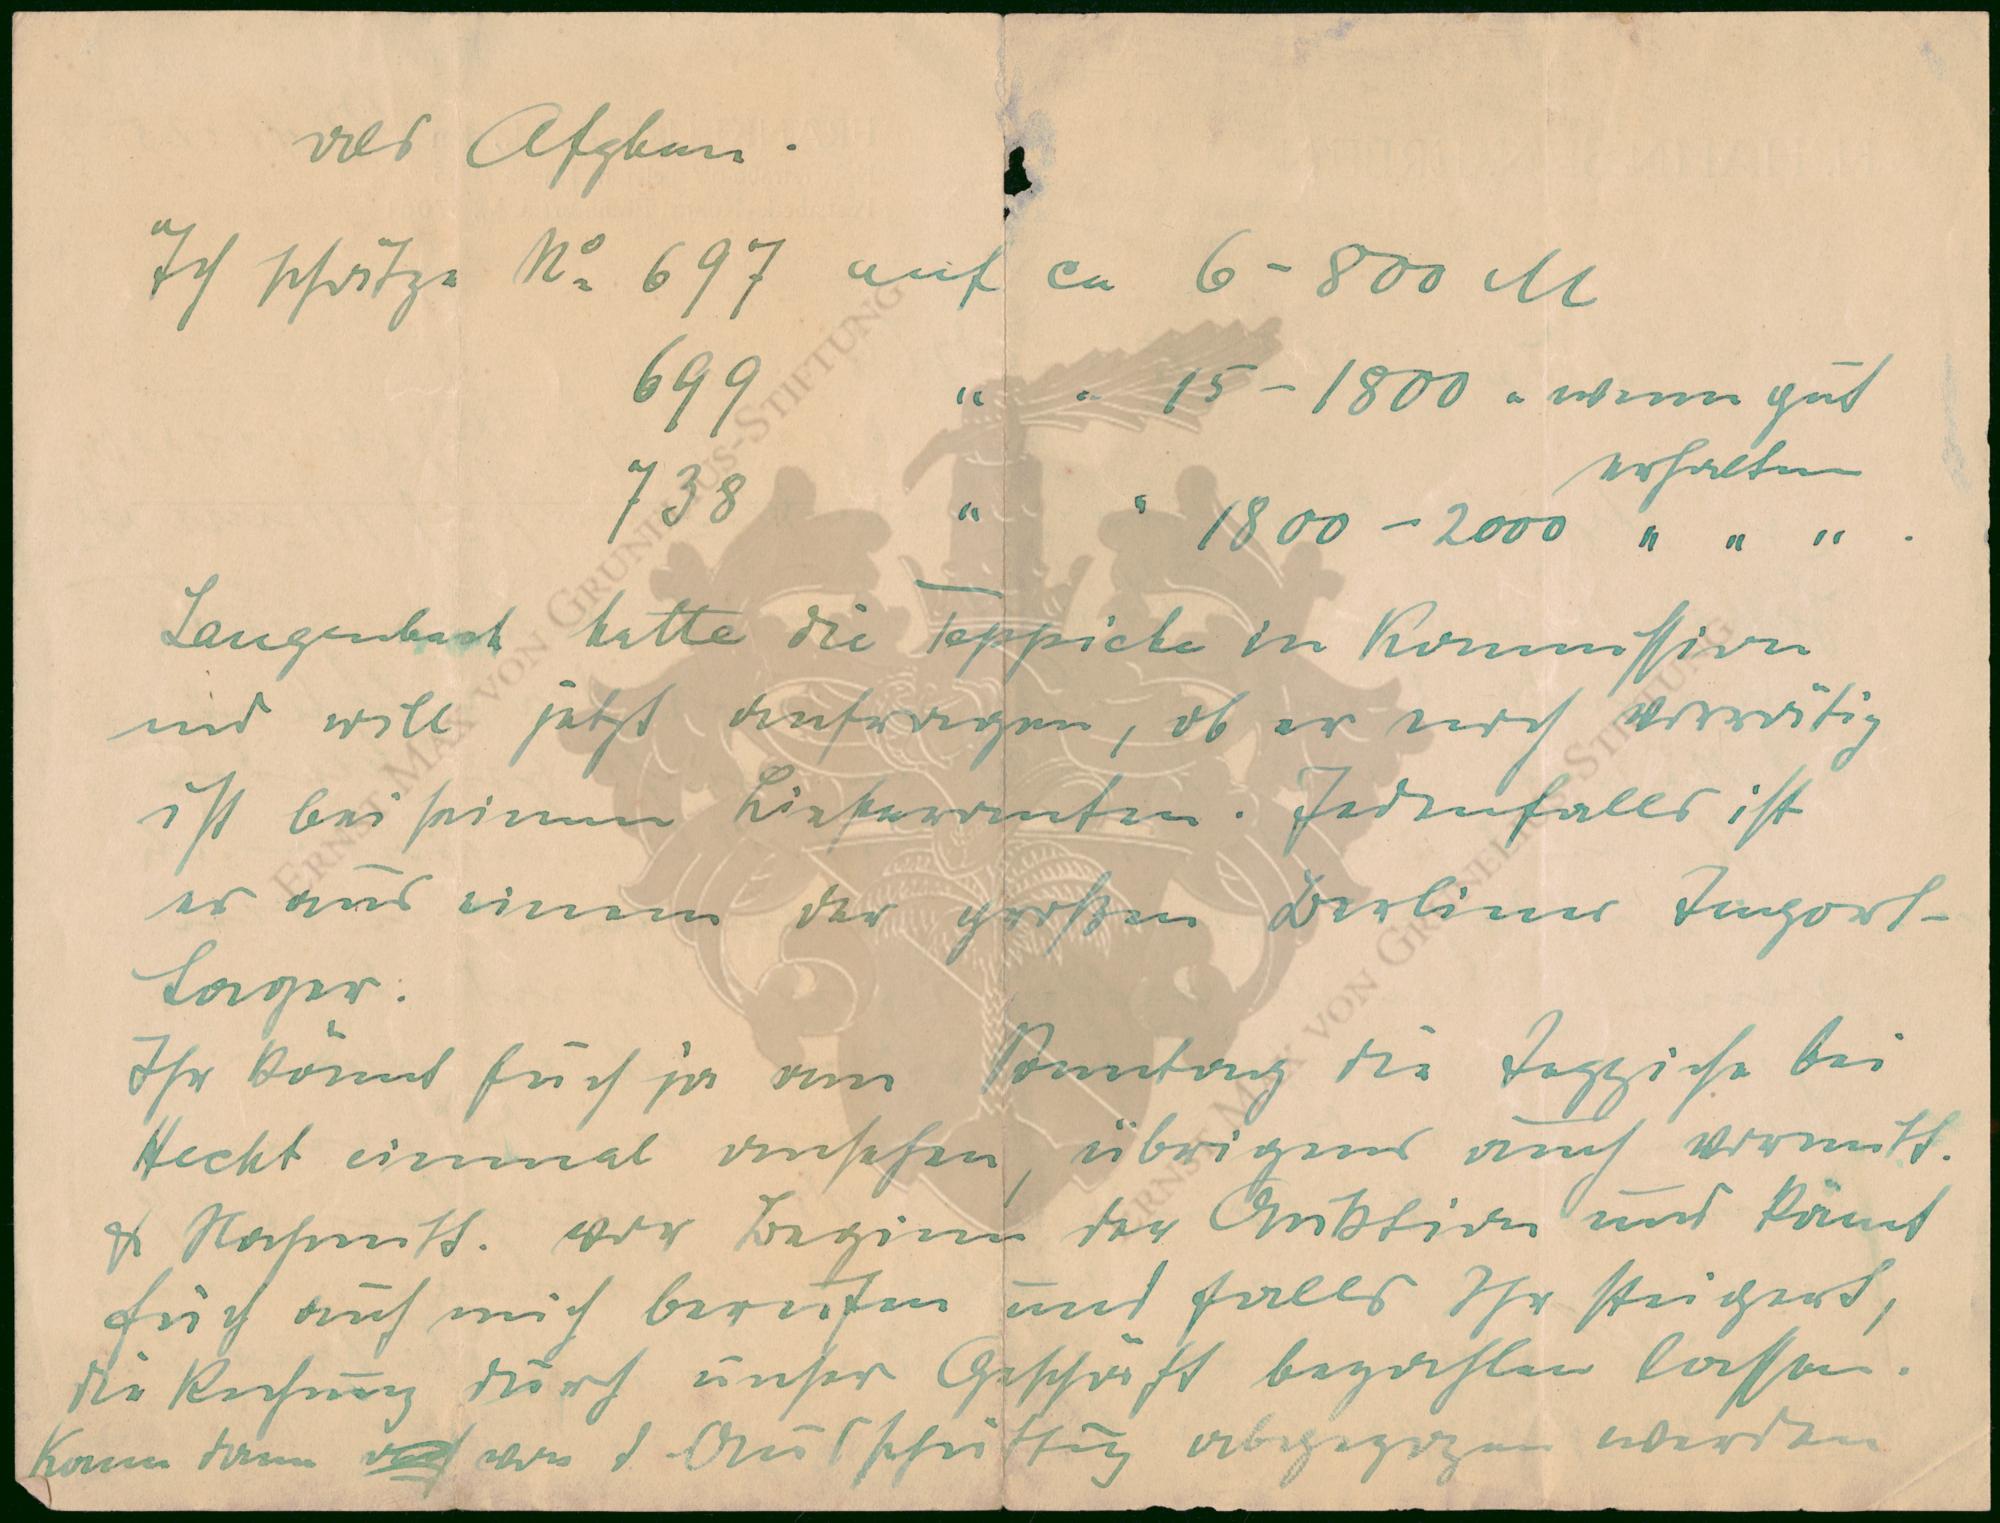 als Afghan.
Ich schätze No 697 auf ca 6-800 M
699 " " 15-1800 " wenn gut
erhalten
738 " " 1800-2000 " " " .
Langenbach hatte die Teppiche in Kommission
und will jetzt anfragen, ob er noch vorrätig
ist bei seinem Lieferanten. Jedenfalls ist
er aus einem der großen Berliner Import-
Lager.
Ihr könnt Euch ja am Sonntag die Teppiche bei
Hecht einmal ansehen, übrigens auch vormitt.
& Nachmitt. vor Beginn der Auktion und könnt
Euch auf mich berufen und falls Ihr steigert,
die Rechnung durch unser Geschäft bezahlen lassen.
Kann dann von d Ausschüttung abgezogen werden
ERNST MAX VON GRUNELIUS-STIFTUNG
ERNST MAX VON GRUNELIUS-STIFTUNG